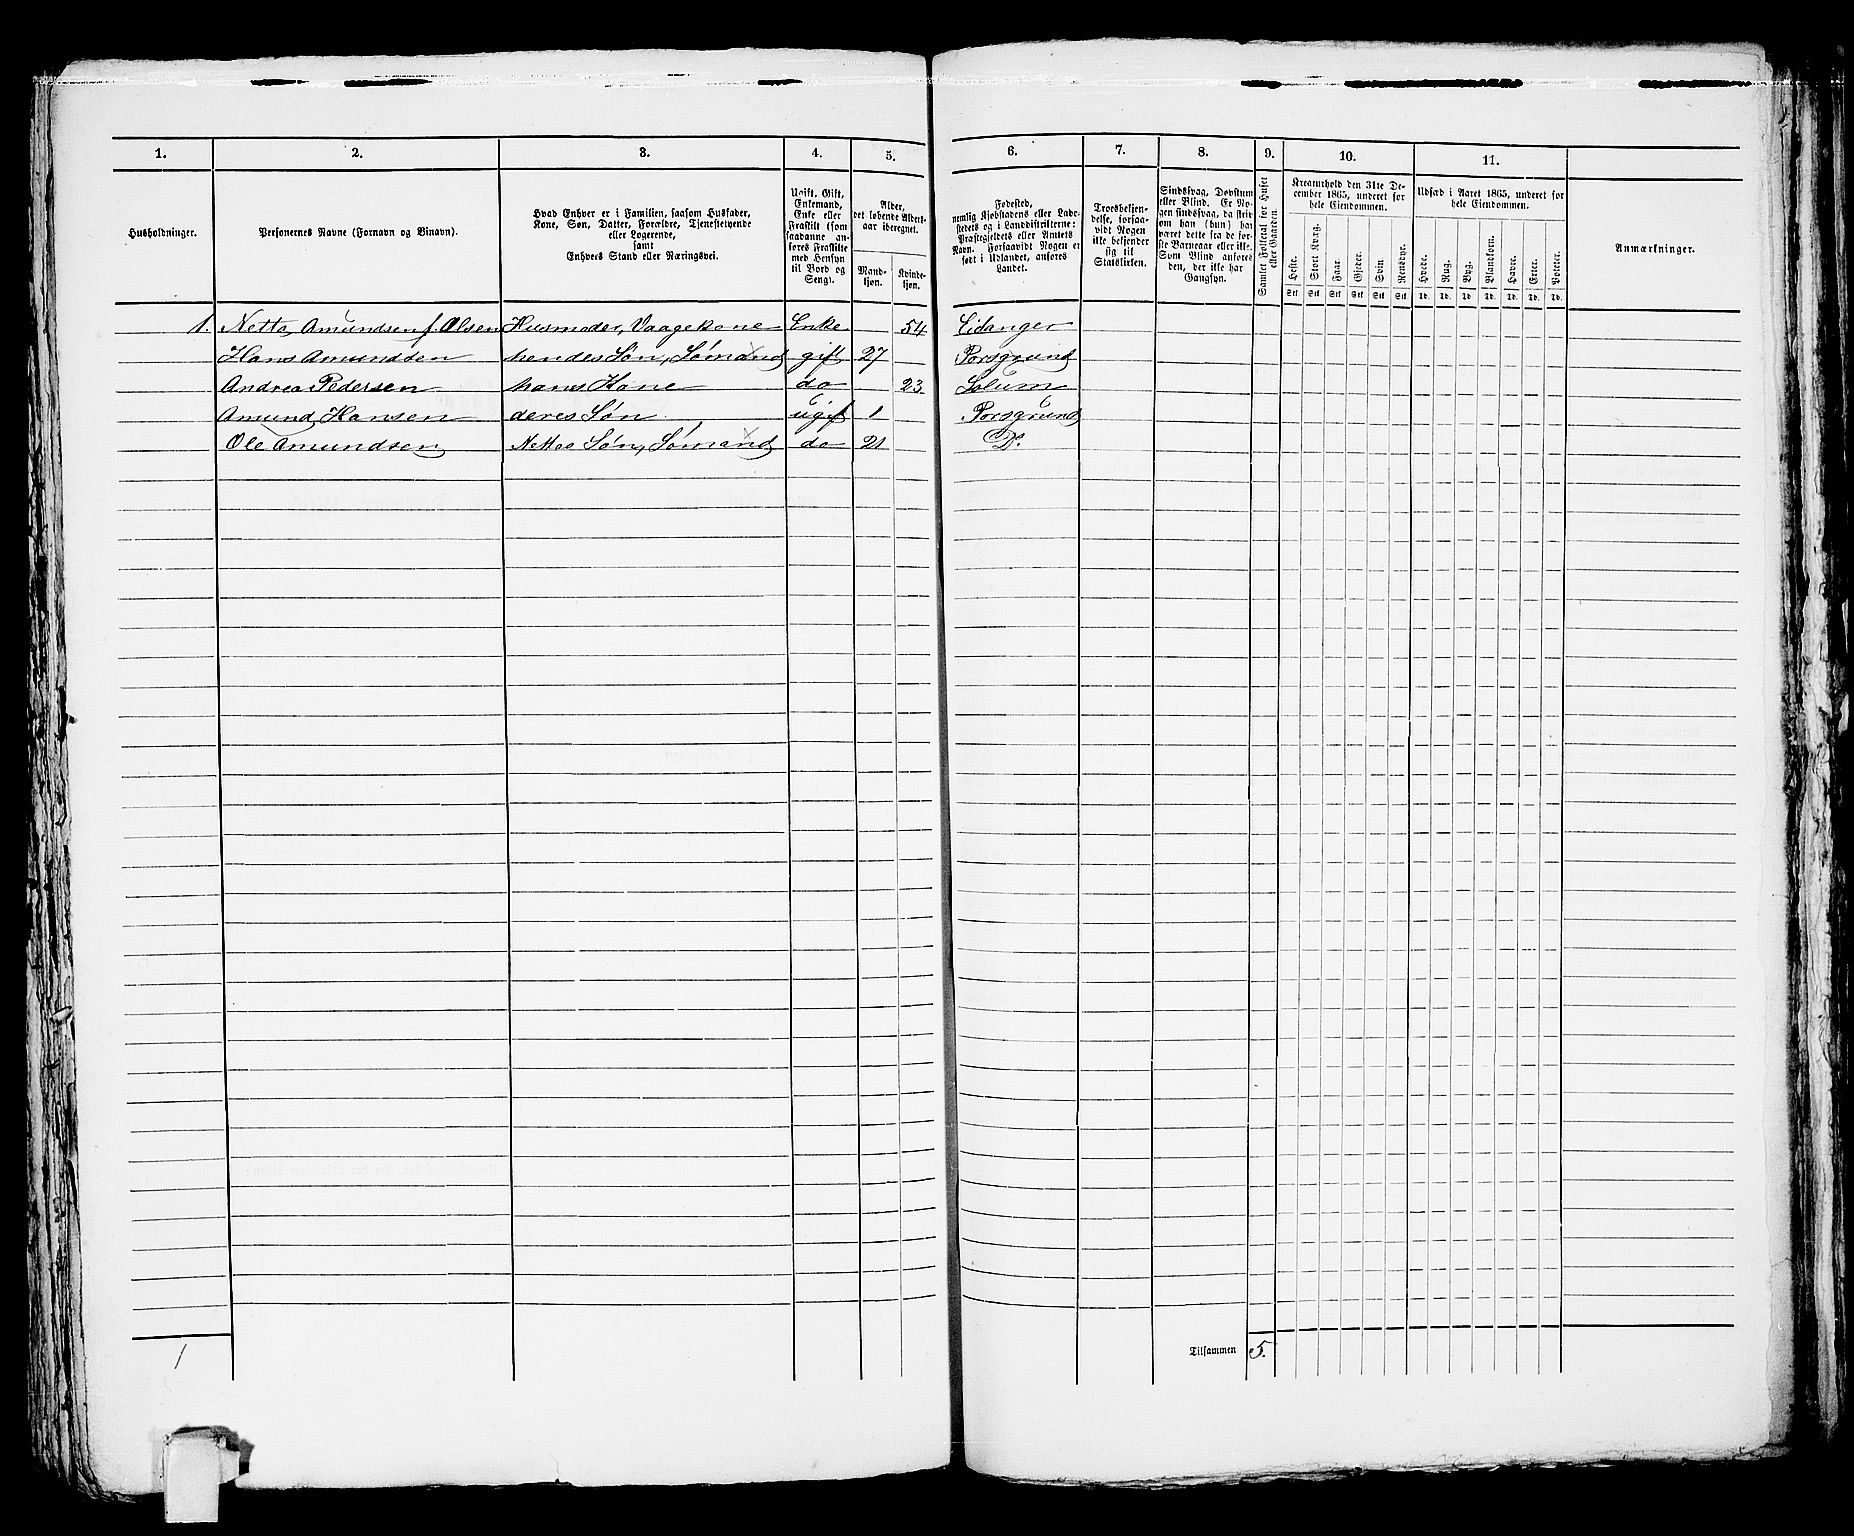 1.
2.
3.
4.
5.
6.
7.
8.
9.
10.
11.
Husholdninger.
Personernes Navne (Fornavn og Binavn).
Hvad Enhver er i Familien, saasom Husfader,
Kone, Søn, Datter, Forældre, Tjenestetyende
eller Logerende,
samt
Enhvers Stand eller Næringsvei.
Ugift, Gift,
Enkemand,
Enke eller
Fraskilt (som
saadanne an-
føres Fraskilte
med Hensyn
til Bord og
Seng).
Alder,
det løbende Alders-
aar iberegnet.
Mand-
kjøn.
Kvinde-
kjøn.
Fødested,
nemlig Kjøbstadens eller Lade-
stedets og i Landdistrikterne:
Præstegjeldets eller Amtets
Navn. Forsaavidt Nogen er
født i Udlandet, anføres
Landet.
Troesbekjen-
delse, forsaa-
vidt Nogen
ikke bekjender
sig til
Statskirken.
Sindssvag, Døvstum
eller Blind. Er No-
gen sindssvag, da skri-
ves om han (hun) har
været dette fra de før-
ste Barneaar eller ikke.
Som Blind anføres
den, der ikke har
Gangsyn.
Samlet Folketal for Huset
eller Gaarden.
Kreaturhold den 31te De-
cember 1865, underet for
hele Eiendommen.
Heste.
Stort Kvæg.
Faar.
Gjeder.
Svin.
Rensdyr.
Stk Stk Stk Stk Stk Stk
Udsæd i Aaret 1865, underet for
hele Eiendommen.
Hvede.
Rug.
Byg.
Blandkorn.
Havre.
Erter.
Poteter.
Td. Td. Td. Td. Td. Td. Td.
Anmærkninger.
1. Netta Amundsen f. Olsen Husmoder, Vaagekone Enke 54 Eidanger
Hans Amundsen hendes Søn, Sømand gift 27 Porsgrund
Andrea Pedersen hans Kone do 23 Solum
Amund Hansen deres Søn ugift 1 Porsgrund
Ole Amundsen Nettas Søn, Sømand do 21 Do.
Tilsammen 5.
1